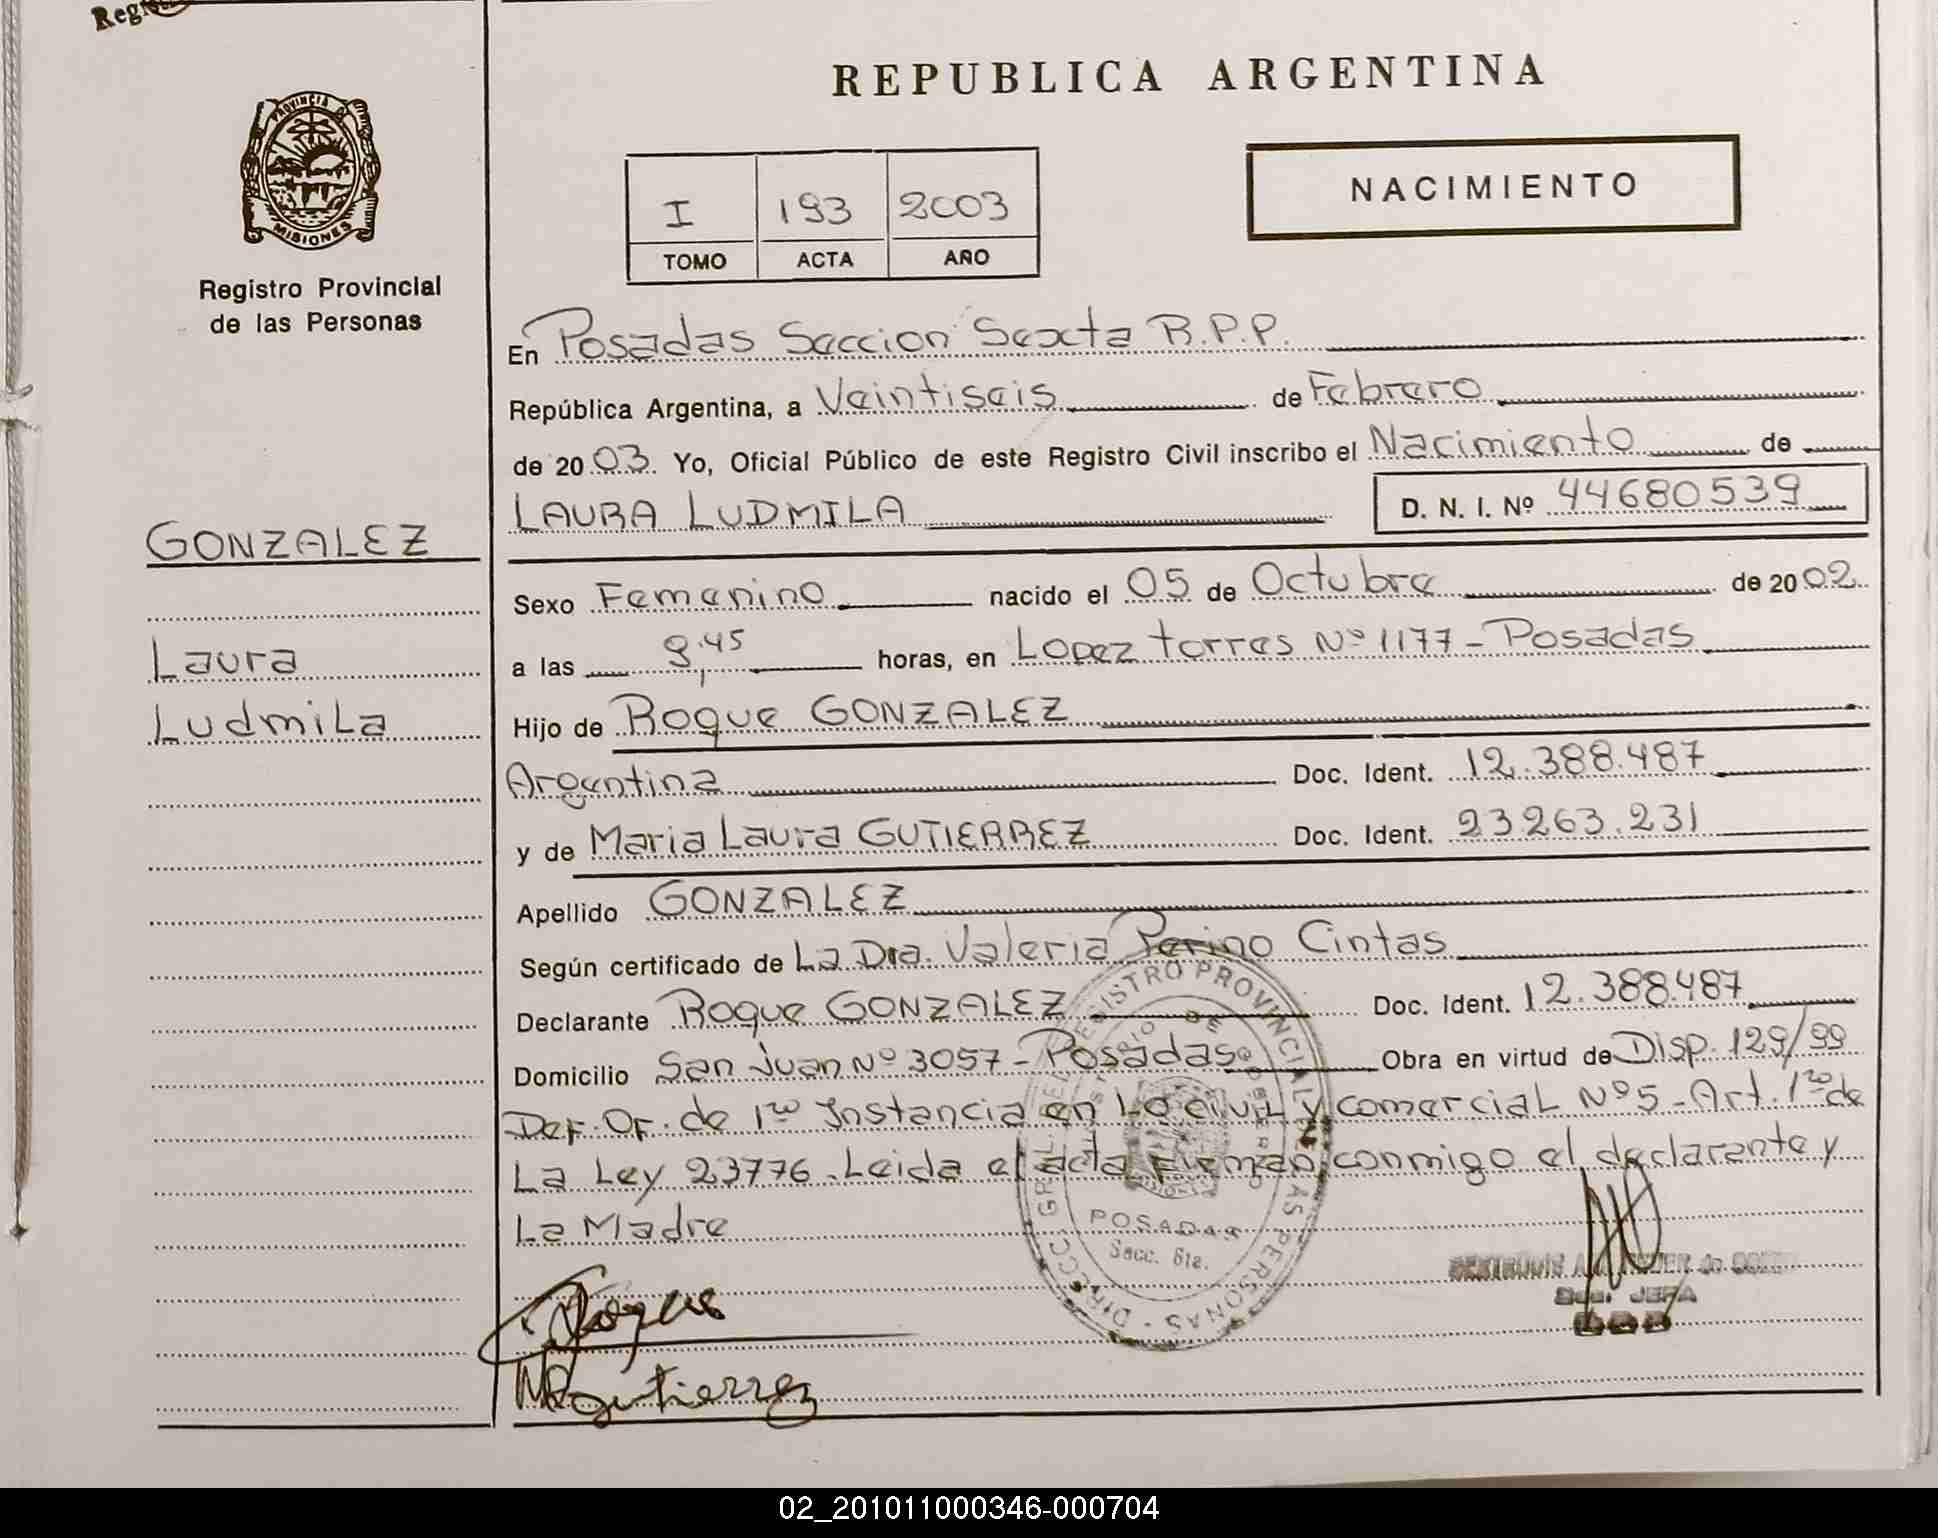 Regis
PROVINCIA DE
MISIONES
Registro Provincial
de las Personas
GONZALEZ
Laura
Ludmila
REPUBLICA ARGENTINA
I 193 2003
TOMO ACTA AÑO
NACIMIENTO
En Posadas Seccion Sexta R.P.P.
República Argentina, a Veintiseis de Febrero
de 2003. Yo, Oficial Público de este Registro Civil inscribo el Nacimiento de
LAURA LUDMILA D. N. I. Nº 44680539
Sexo Femenino nacido el 05 de Octubre de 2002
a las 9,45 horas, en Lopez torres Nº 1177 - Posadas
Hijo de Roque GONZALEZ
Argentina Doc. Ident. 12.388.487
y de Maria Laura GUTIERREZ Doc. Ident. 23.263.231
Apellido GONZALEZ
Según certificado de La Dra. Valeria Perino Cintas
Declarante Roque GONZALEZ Doc. Ident. 12.388.487
Domicilio San Juan Nº 3057 - Posadas Obra en virtud de Disp. 129/99
Def. Of. de 1ro Instancia en Lo civil y comercial Nº 5 - Art. 1ro de
La Ley 23776. Leida el acta Firman conmigo el declarante y
La Madre
DIRECC. GRAL. DEL REGISTRO PROVINCIAL DE LAS PERSONAS
POSADAS
Secc. 6ta.
Roque
MLgutierrez
JEFA
02_201011000346-000704